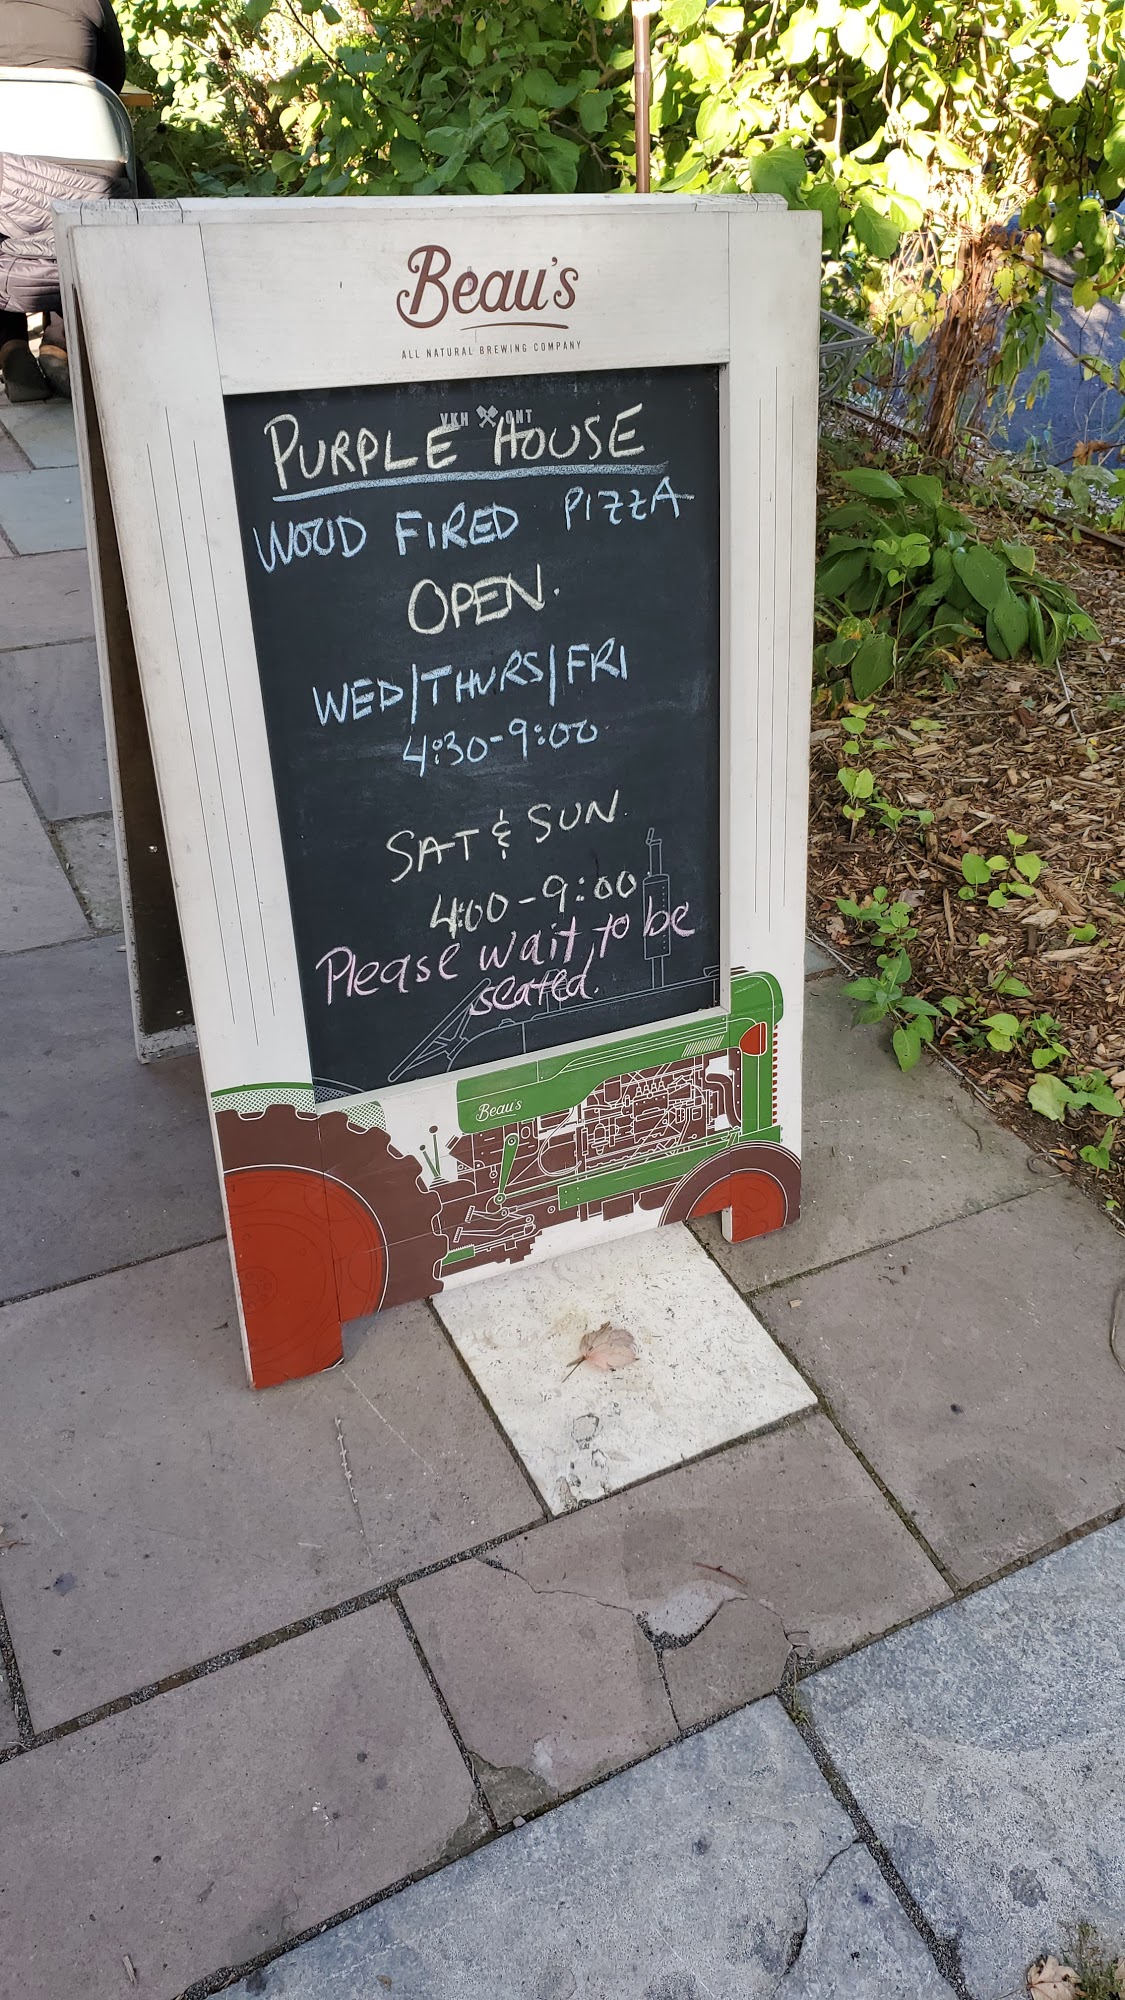 Beau's
ALL NATURAL BREWING COMPANY
VKH ONT
PURPLE HOUSE
WOOD FIRED PIZZA
OPEN.
WED/THURS/FRI
4:30-9:00
SAT & SUN.
4:00-9:00
Please wait to be
seated.
Beau's